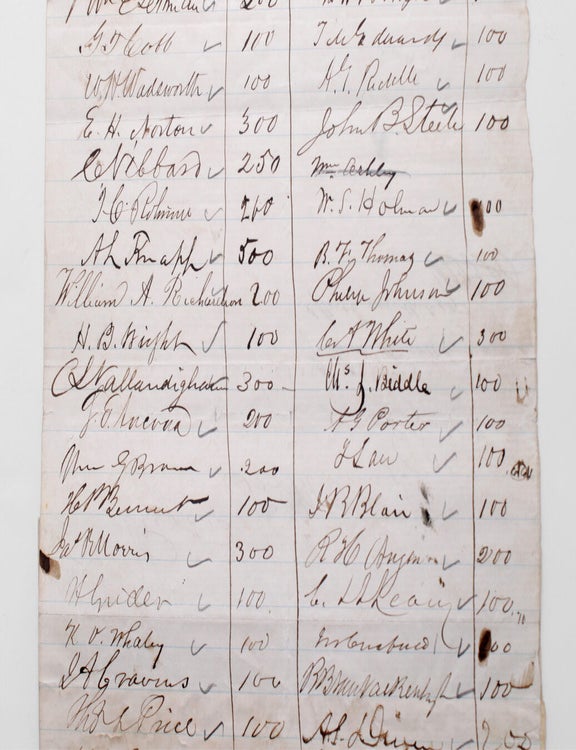 G T Cobb ✓ 100 T M Edwards ✓ 100
W. H. Wadsworth ✓ 100 A. G. Riddle ✓ 100
E. H. Norton ✓ 300 John B. Steele ✓ 100
C Vibbard ✓ 250 Wm Ashley
✓ 200 W. S. Holman ✓ 100
A L Knapp ✓ 500 B. F. Thomas ✓ 100
William A. Richardson 200 Philip Johnson ✓ 100
H. B. Wright ✓ 100 C A White ✓ 300
C L Vallandigham 300 J. Biddle ✓ 100
✓ 200 A G Porter ✓ 100
Wm G Brown ✓ 200 J Law ✓ 100
H P Bennet ✓ 100 J B Blair ✓ 100
Jas R Morris ✓ 300 R H Nugen ✓ 200
H Grider ✓ 100 C. L L Leary ✓ 100
K V Whaley ✓ 100 ✓ 100
J A Cravens ✓ 100 R B Van Valkenburgh ✓ 100
Tho L Price ✓ 100 A. S. Diven